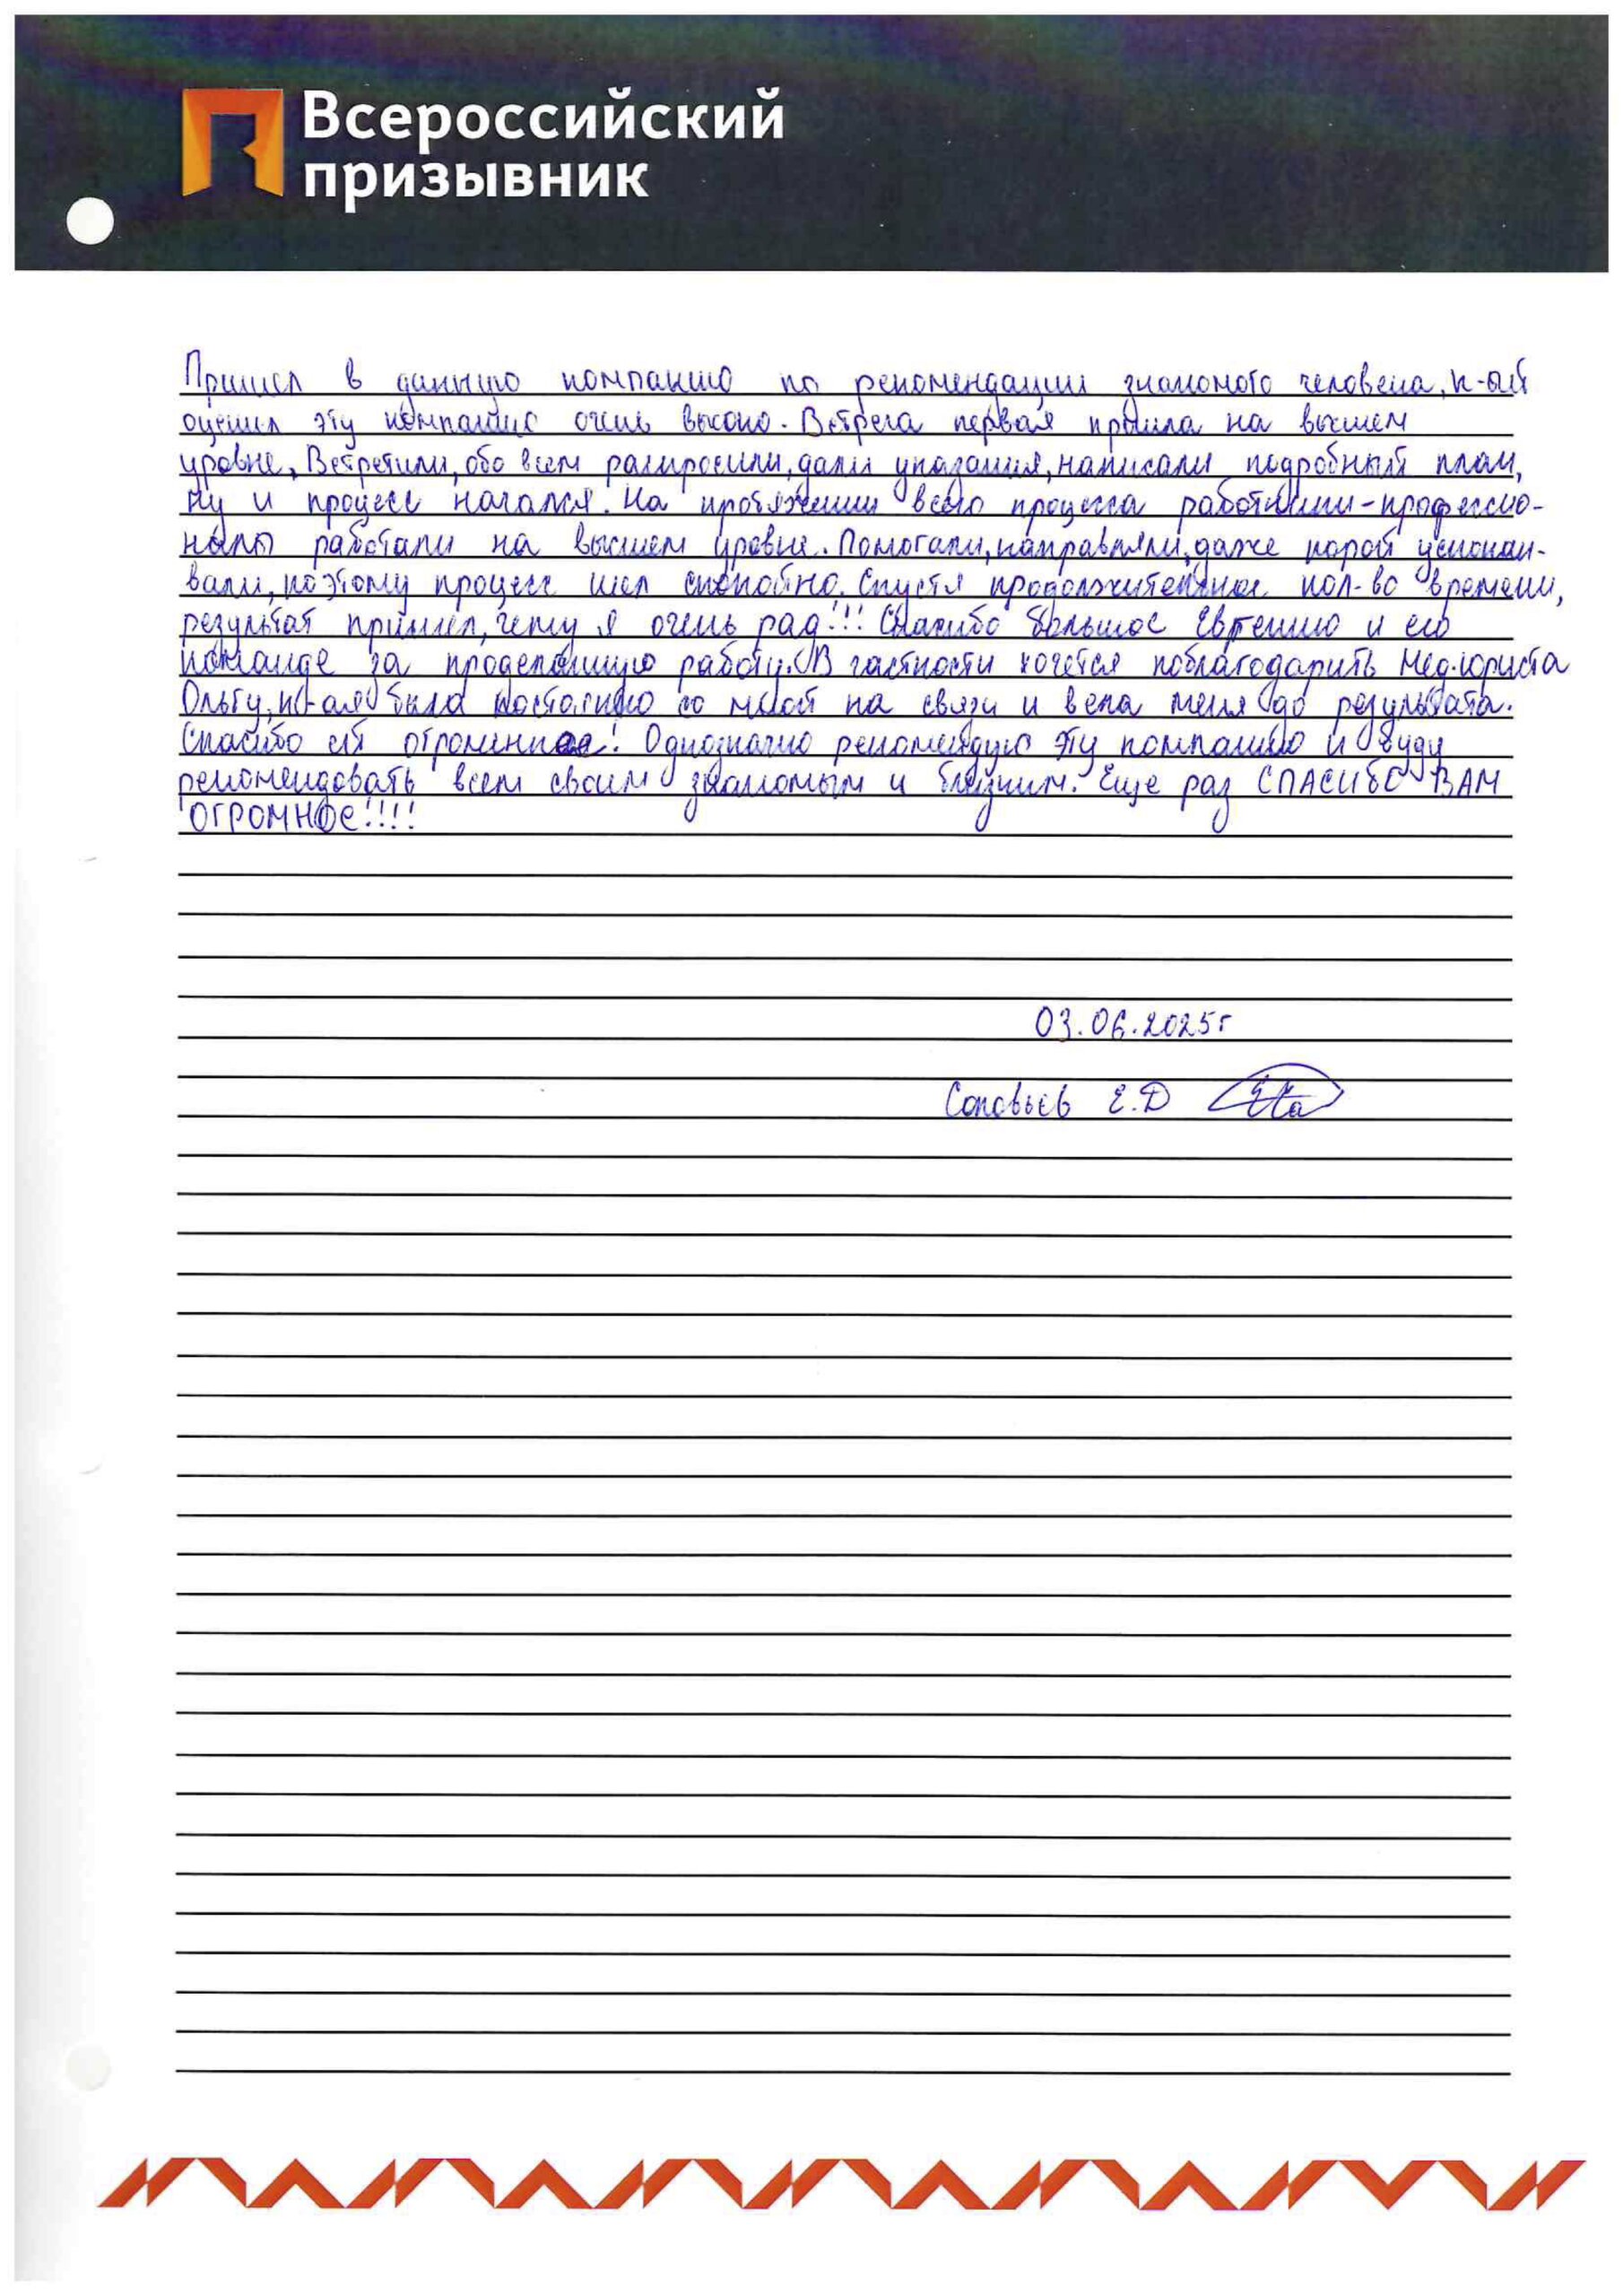 Всероссийский
призывник
Пришел в данную компанию по рекомендации знакомого человека, к-ый
оценил эту компанию очень высоко. Встреча первая прошла на высшем
уровне, Встретили, обо всем расспросили, дали указания, написали подробный план,
ну и процесс начался. На протяжении всего процесса работники-профессио-
налы работали на высшем уровне. Помогали, направляли, даже порой успокаи-
вали, поэтому процесс шел спокойно. Спустя продолжительное кол-во времени,
результат пришел, чему я очень рад!!! Спасибо большое Евгению и его
команде за проделанную работу. В частности хочется поблагодарить мед.юриста
Ольгу, к-ая была постоянно со мной на связи и вела меня до результата.
Спасибо ей огромнное! Однозначно рекомендую эту компанию и буду
рекомендовать всем своим знакомым и близким. Еще раз СПАСИБО ВАМ
ОГРОМНОЕ!!!!
03.06.2025г
Соловьев Е.Д